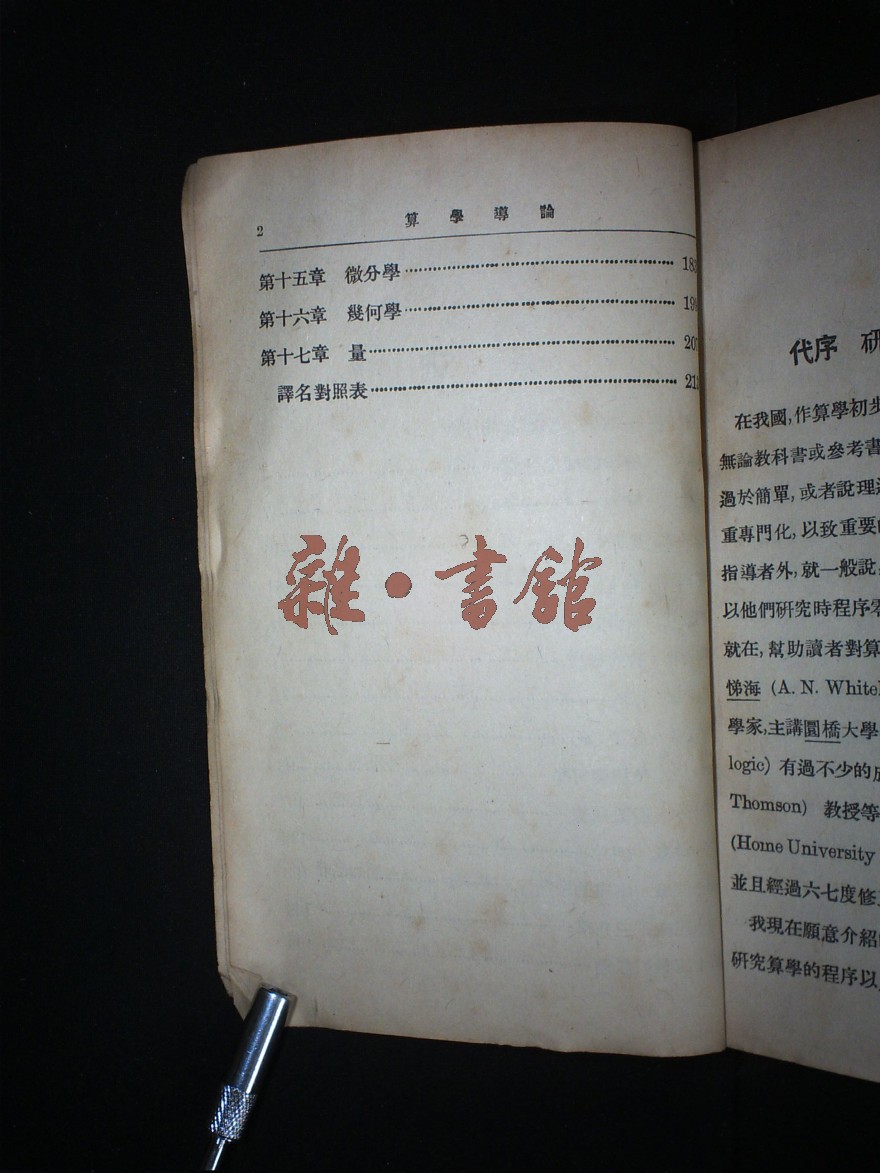 2
算學導論
第十五章 微分學 183
第十六章 幾何學 19
第十七章 量 207
譯名對照表 21
雜·書館
代序 研
在我國,作算學初步
無論教科書或參考書
過於簡單,或者說理
重專門化,以致重要
指導者外,就一般說,
以他們研究時程序
就在,幫助讀者對算
悌海 (A. N. White
學家,主講圜橋大學
logic) 有過不少的成
Thomson) 教授等
(Home University
並且經過六七度修
我現在願意介紹
研究算學的程序以